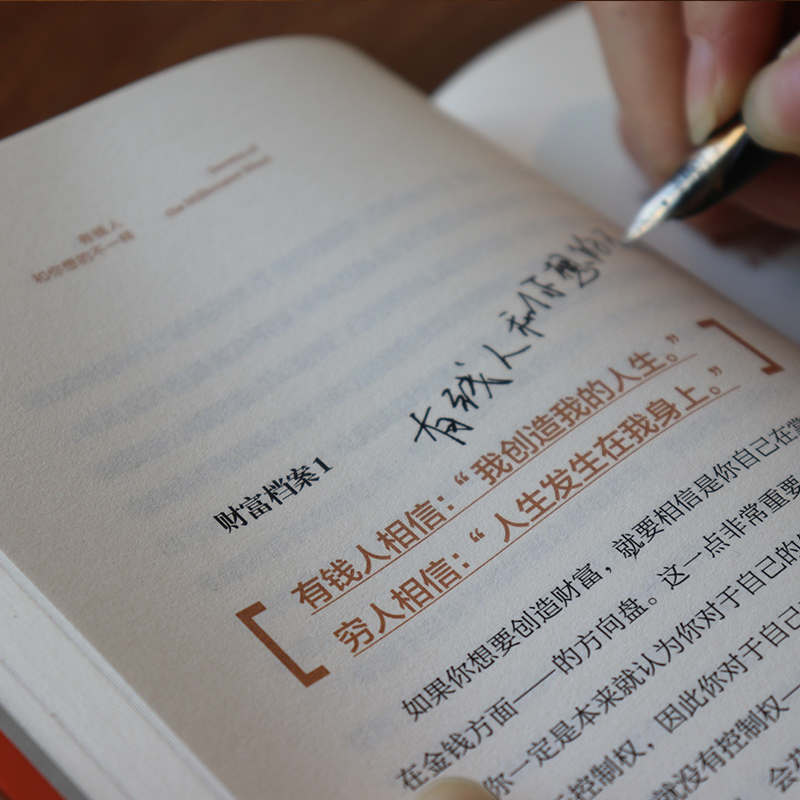 有钱人
和你想的不一样
Secrets of
the Millionaire Mind
有钱人和你想的
财富档案1
有钱人相信：“我创造我的人生。”
穷人相信：“人生发生在我身上。”
如果你想要创造财富，就要相信是你自己在掌
在金钱方面——的方向盘。这一点非常重要
你一定是本来就认为你对于自己的
控制权，因此你对于自己
就没有控制权——
会花